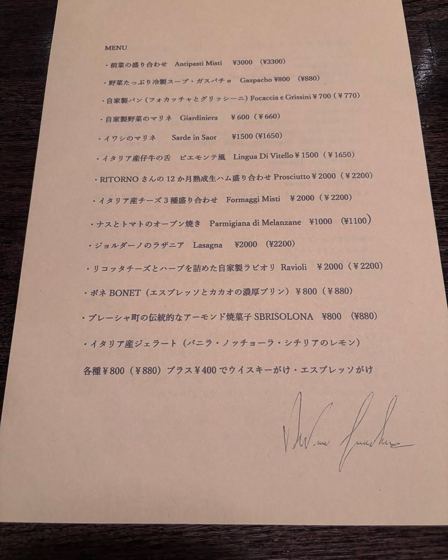 MENU
・前菜の盛り合わせ Antipasti Misti ¥3000 (¥3300)
・野菜たっぷり冷製スープ・ガスパチョ Gazpacho ¥800 (¥880)
・自家製パン (フォカッチャとグリッシーニ) Focaccia e Grissini ¥700 (¥770)
・自家製野菜のマリネ Giardiniera ¥600 (¥660)
・イワシのマリネ Sarde in Saor ¥1500 (¥1650)
・イタリア産仔牛の舌 ピエモンテ風 Lingua Di Vitello ¥1500 (¥1650)
・RITORNO さんの 12 か月熟成生ハム盛り合わせ Prosciutto ¥2000 (¥2200)
・イタリア産チーズ 3 種盛り合わせ Formaggi Misti ¥2000 (¥2200)
・ナスとトマトのオーブン焼き Parmigiana di Melanzane ¥1000 (¥1100)
・ジョルダーノのラザニア Lasagna ¥2000 (¥2200)
・リコッタチーズとハーブを詰めた自家製ラビオリ Ravioli ¥2000 (¥2200)
・ボネ BONET (エスプレッソとカカオの濃厚プリン) ¥800 (¥880)
・ブレーシャ町の伝統的なアーモンド焼菓子 SBRISOLONA ¥800 (¥880)
・イタリア産ジェラート (バニラ・ノッチョーラ・シチリアのレモン)
各種¥800 (¥880) プラス¥400 でウイスキーがけ・エスプレッソがけ